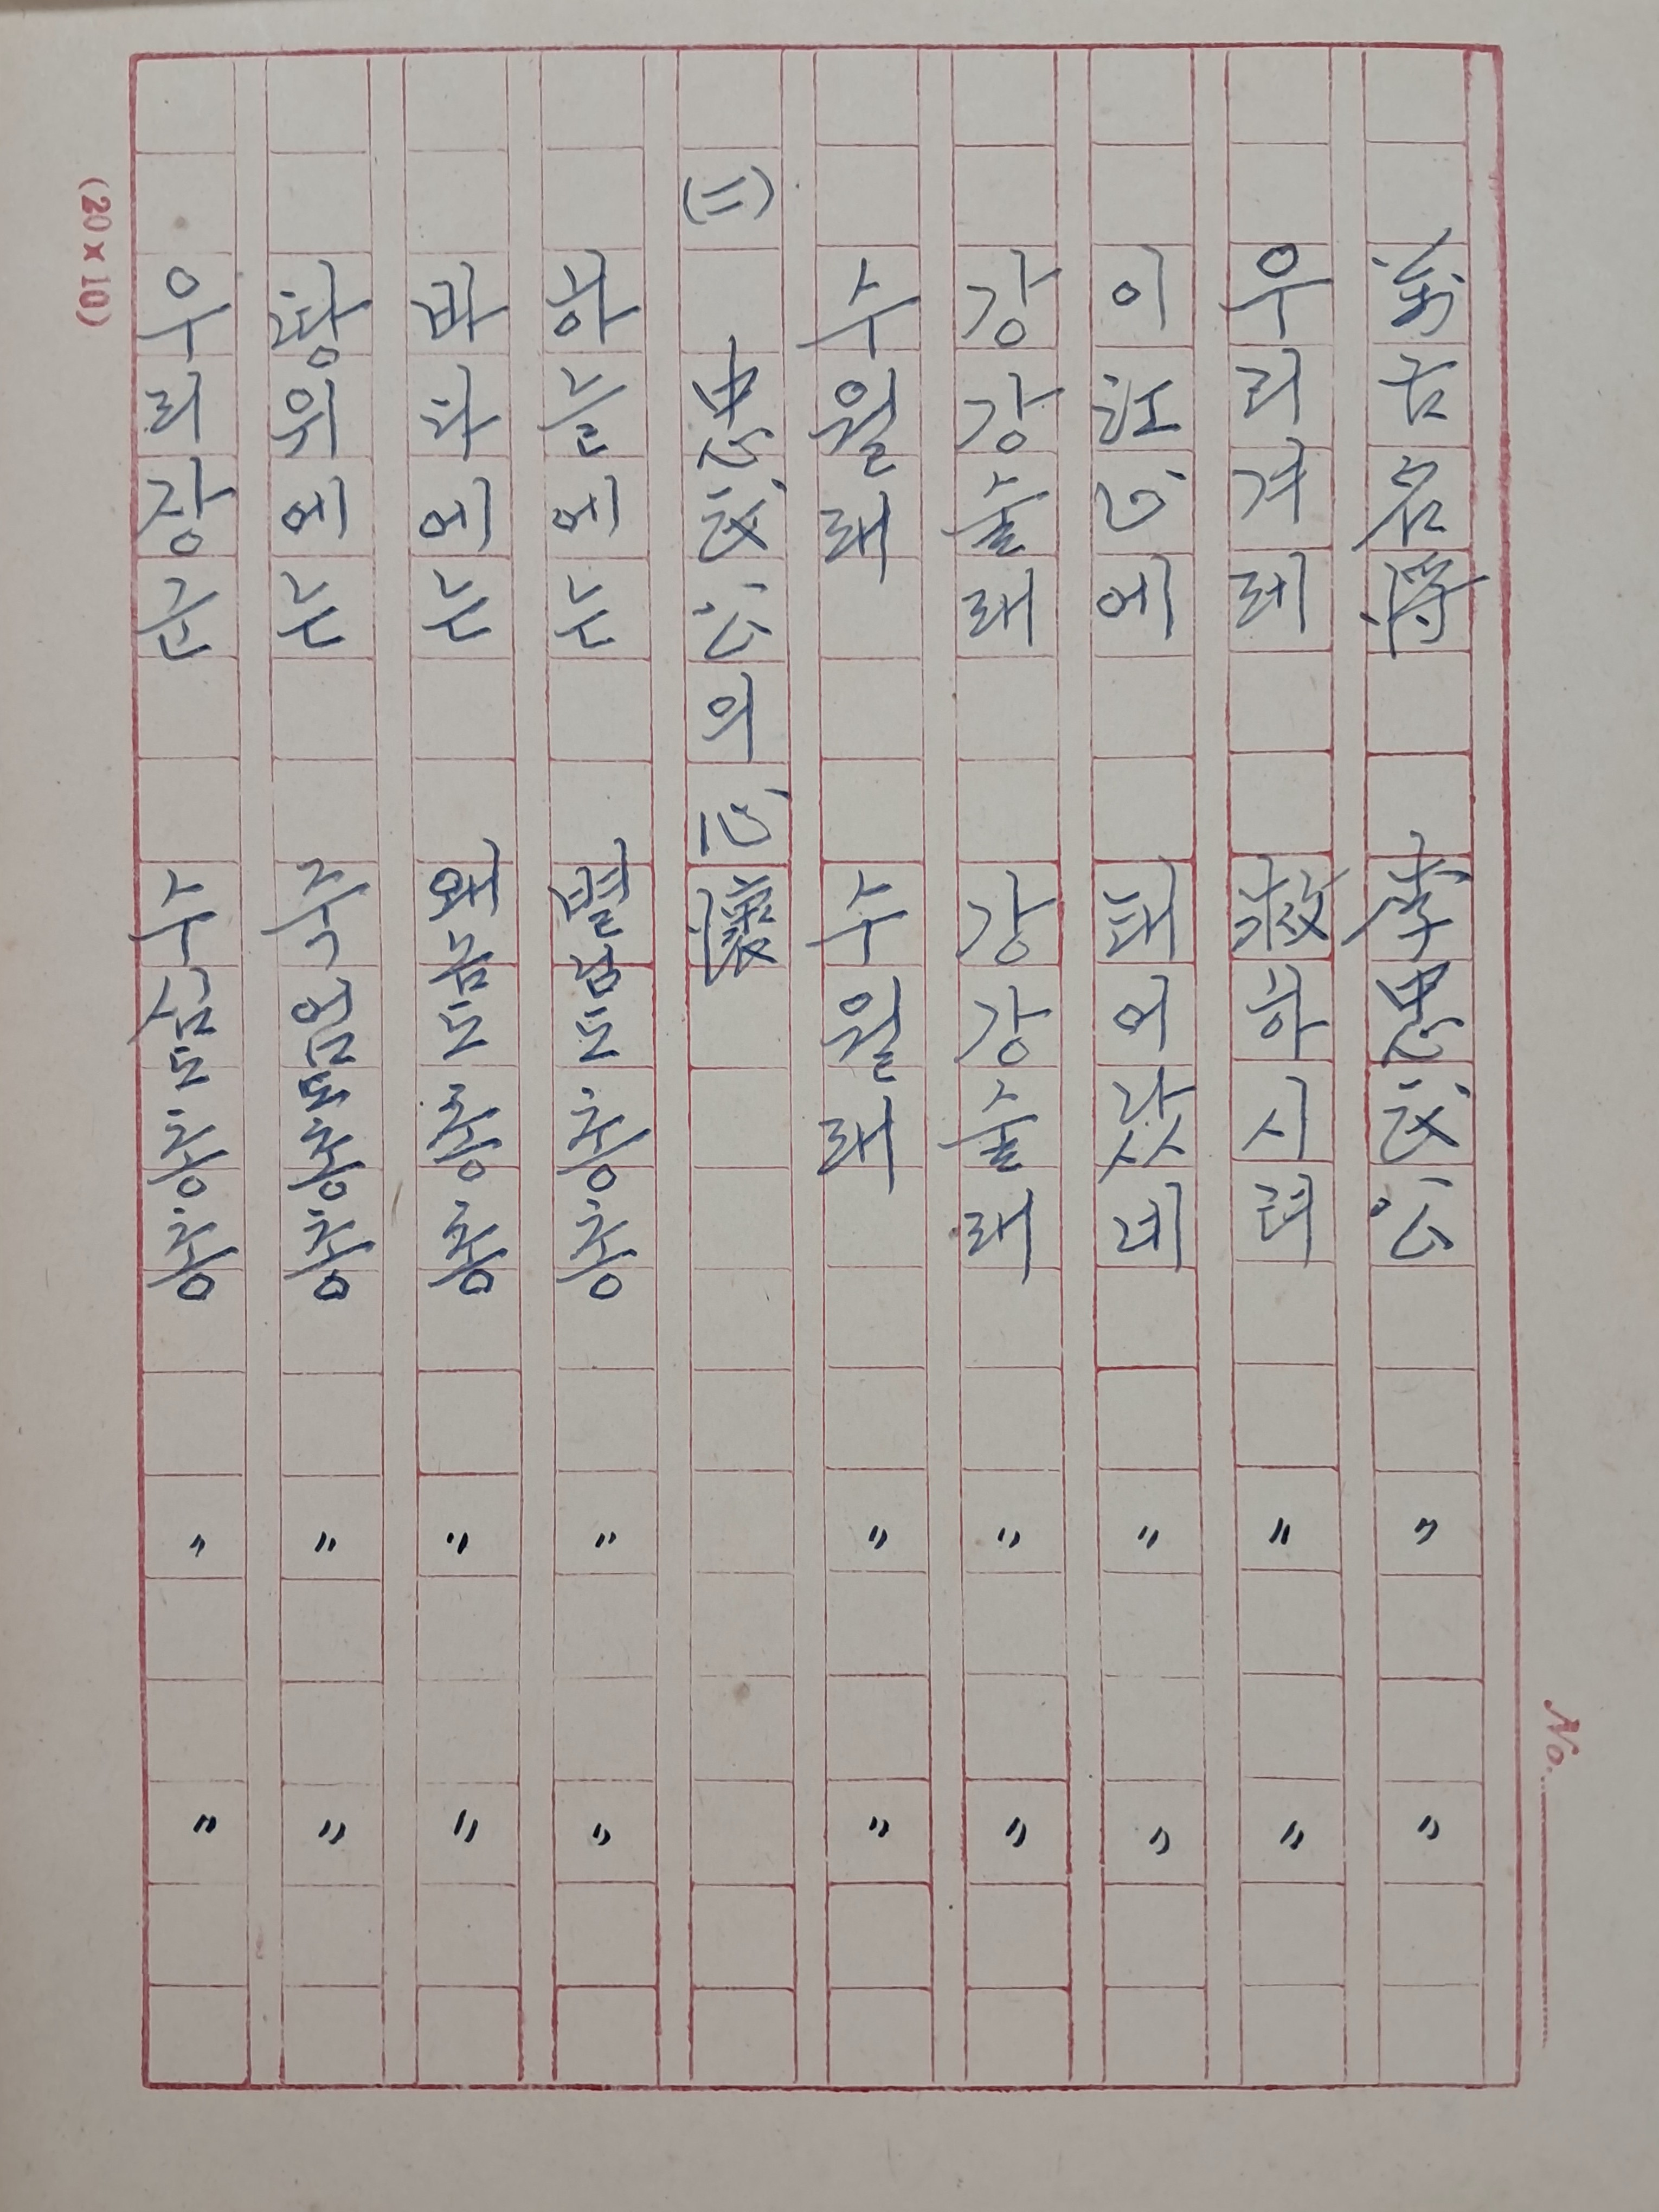 萬古名將 李忠武公 〃 〃
우리겨레 救하시려 〃 〃
이江山에 태어났네 〃 〃
강강술래 강강술래 〃 〃
수월래 수월래 〃 〃
(二) 忠武公의 心懷
하늘에는 별님도총총 〃 〃
바다에는 왜놈도총총 〃 〃
땅위에는 주검도총총 〃 〃
우리장군 수심도총총 〃 〃
(20×10)
No.